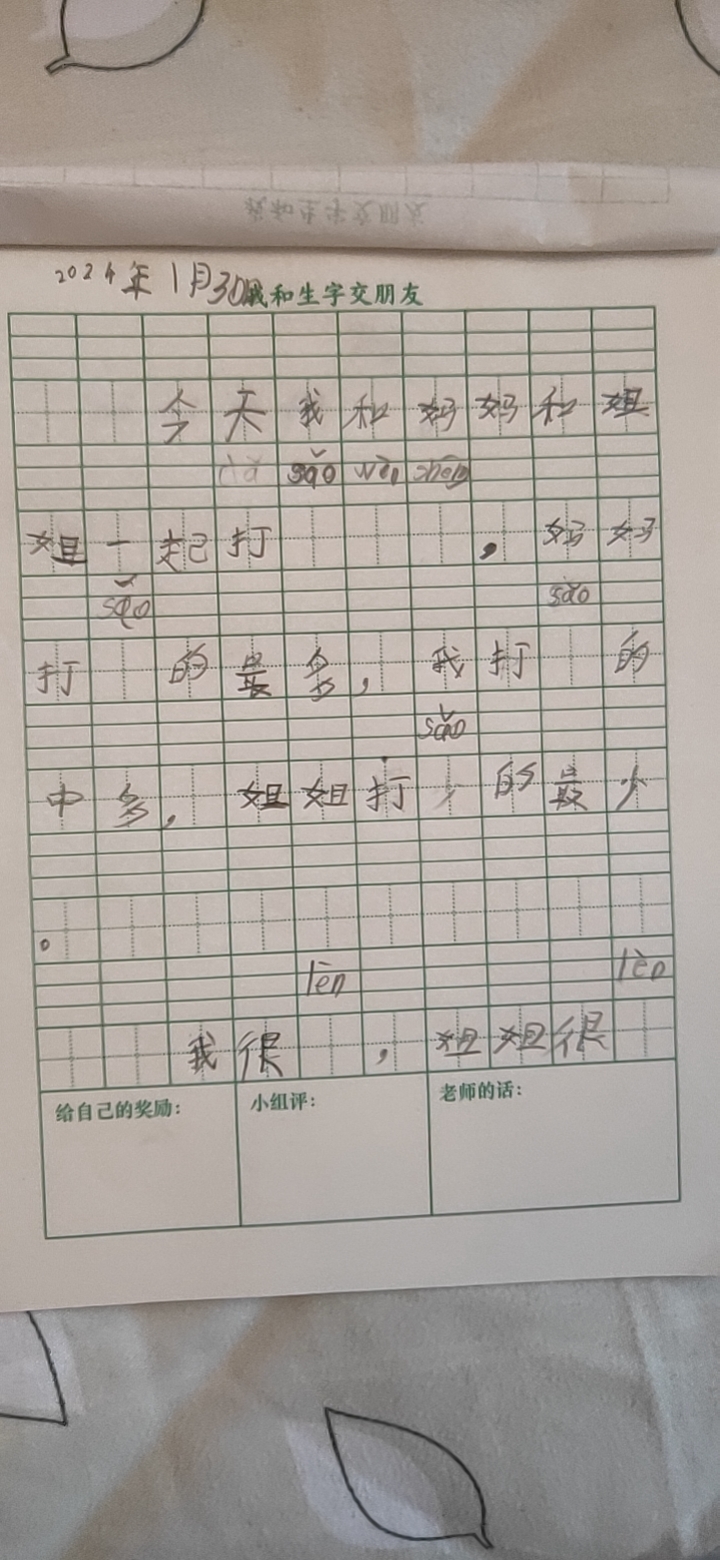 我和生字交朋友
2024年1月30日
我和生字交朋友
今天我和妈妈和姐
dǎ sǎo wèi shēng
姐一起打，妈妈
sǎo sǎo
打的最多，我打的
sǎo
中多，姐姐打的最少
。
lèn lèn
我很，姐姐很
给自己的奖励： 小组评： 老师的话：